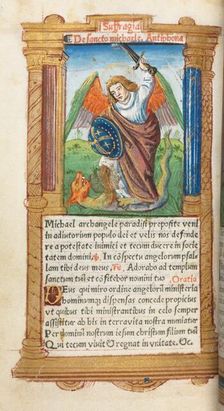 Suffragia
De sancto michaele. Antiphona
Michael archangele paradisi preposite veni
in adiutorium populo dei et velis nos defende
re a potestate inimici et tecum ducere in socie
tatem domini. In cōspectu angelorum psal
lam tibi deus meus. Adorabo ad templum
sanctum tuū et cōfitebor nomini tuo Oratio
Deus qui miro ordine angelorū ministeria
hominumq dispensas concede propicius
vt quibus tibi ministrantibus in celo semper
assistitur ab his in terra vita nostra muniatur
Per dominū nostrum iesum christum filium tuū
Qui tecum viuit & regnat in vnitate. &c.